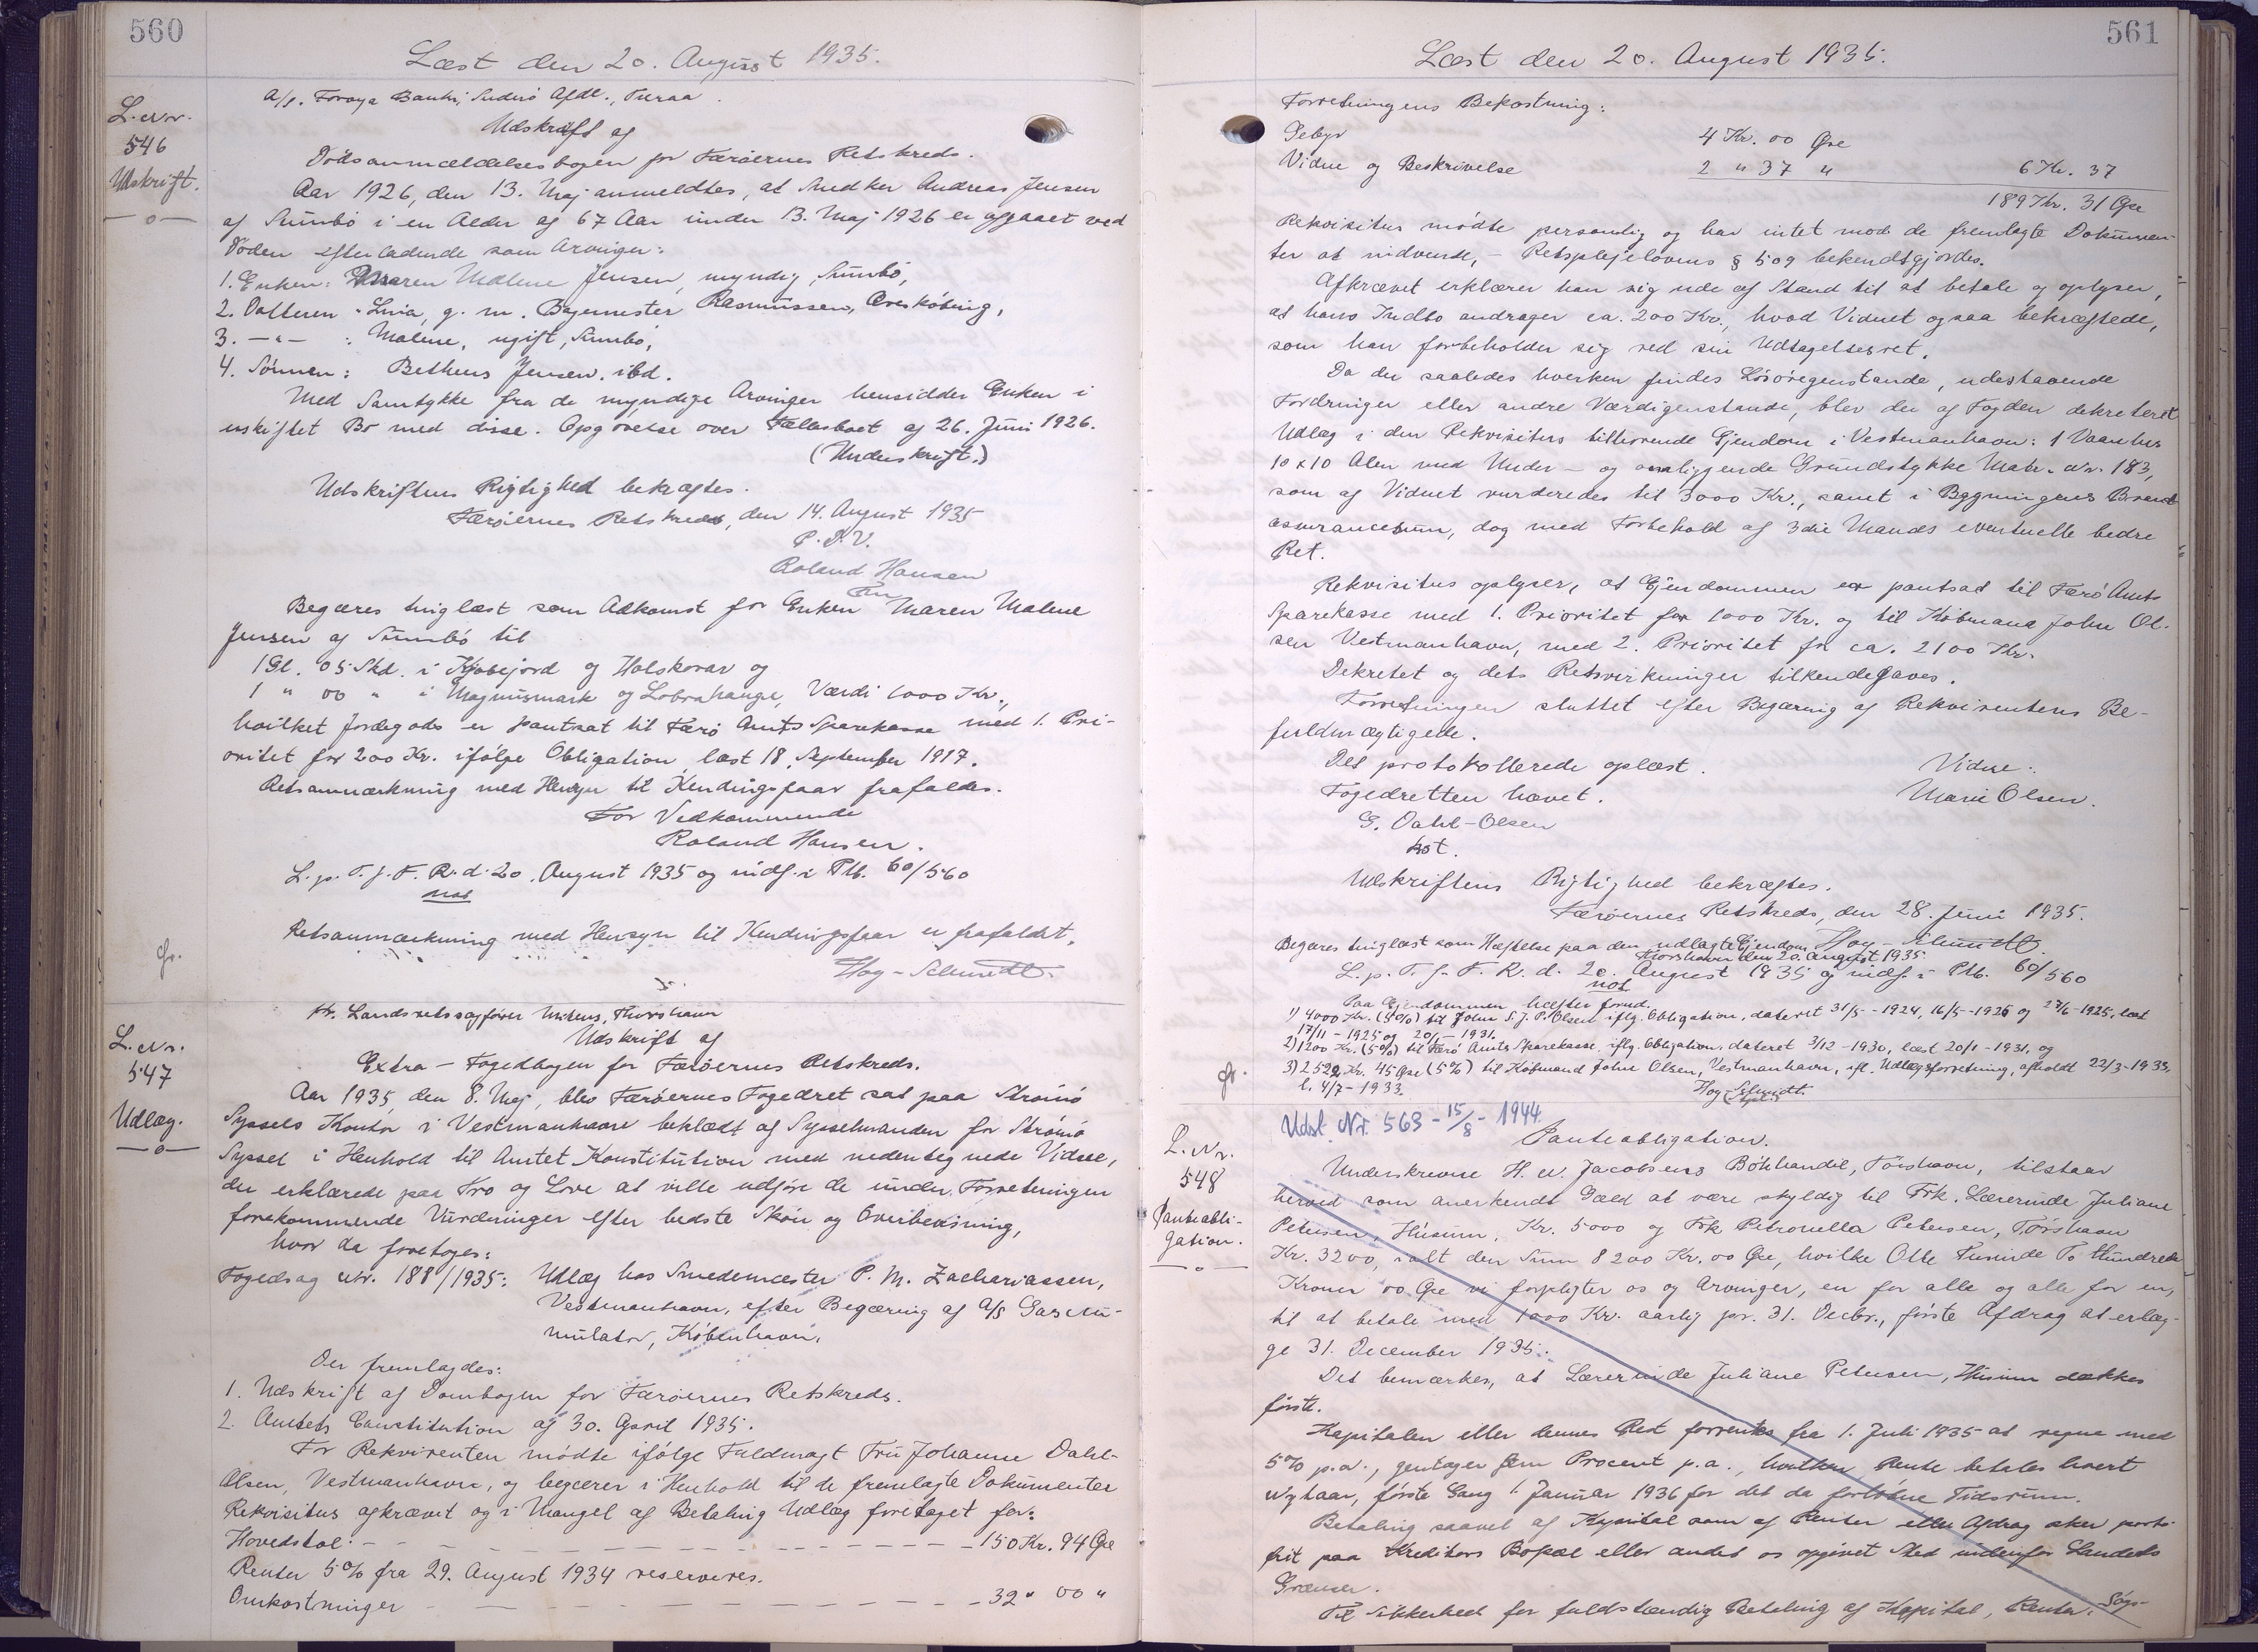 560
Læst den 20. August 1935.
A/s. Føroya Banki, Suderø Afdl., Tveraa.
L. Nr.
546
Udskrift.
Udskrift af
Dødsanmældelsesbogen for Færøernes Retskreds.
Aar 1926, den 13. Maj anmeldtes, at Andreas Jensen
af Sumbø i en Alder af 67 Aar under 13. Maj 1926 er afgaaet ved
Døden efterladende som Arvinger:
1. Enken: Maren Malene Jensen, myndig, Sumbø,
2. Datteren: Lina, g. m. Bagermester Rasmussen,
3. —"— : Malene, ugift, Sumbø,
4. Sønnen: Jensen, ibd.
Med Samtykke fra de myndige Arvinger hensidder Enken i
uskiftet Bo med disse. Opgørelse over Fællesboet af 26. Juni 1926.
(Underskrift.)
Udskriftens Rigtighed bekræftes.
Færøernes Retskreds, den 14. August 1935
P. D. V.
Roland Hansen
Begæres tinglæst som Adkomst for Enken Fru Maren Malene
Jensen af Sumbø til
1 Gl. 05 Skd. i og Holskorar og
1 " 00 " i Magnusmark og Værdi 1000 Kr.,
hvilket Jordegods er pantsat til Færø Amts Sparekasse med 1. Pri-
oritet for 200 Kr. ifølge Obligation, læst 18. September 1917.
Retsanmærkning med Hensyn til Kendingsfaar frafaldes.
For Vedkommende
Roland Hansen.
L. p. T. f. F. R. d. 20. August 1935 og indf. i Ptb. 60/560
not
Retsanmærkning med Hensyn til Kendingsfaar er frafaldet.
Høg-Schmidt.
Hr. Landsretssagfører Mikkens, Thorshavn
L. Nr.
547
Udlæg.
Udskrift af
Extra-Fogedbogen for Færøernes Retskreds.
Aar 1935, den 8. Maj, blev Færøernes Fogedret sat paa Strømø
Syssels Kontor i Vestmanhavn beklædt af Sysselmanden for Strømø
Syssel i Henhold til Amtet Konstitution med undertegnede Vidne,
der erklærede paa Tro og Love at ville udføre de under Forretningen
forekommende Vurderinger efter bedste Skøn og Overbevisning,
hvor da foretoges:
Fogedsag Nr. 188/1935: Udlæg hos Smedemester P. M. Zachariassen,
Vestmanhavn, efter Begæring af A/S Gasaccu-
mulator, København.
Der fremlagdes:
1. Udskrift af Dombogen for Færøernes Retskreds.
2. Amtets Constitution af 30. April 1935.
For Rekvirenten mødte ifølge Fuldmagt Fru Johanne Dahl-
Olsen, Vestmanhavn, og begærer i Henhold til de fremlagte Dokumenter
Rekvisitus afkrævet og i Mangel af Betaling Udlæg foretaget for:
Hovedstol: — — — 150 Kr. 94 Øre
Renter 5% fra 29. August 1934 reserveres.
Omkostninger — — — 32 " 00 "
561
Læst den 20. August 1935.
Forretningens Bekostning:
Gebyr 4 Kr. 00 Øre
Vidne og Beskrivelse 2 " 37 " 6 Kr. 37
189 Kr. 31 Øre
Rekvisitus mødte personlig og har intet mod de fremlagte Dokumen-
ter at indvende, — Retsplejelovens § 509 bekendtgjordes.
Afkrævet erklærer han sig ude af Stand til at betale og oplyser,
at hans Indbo andrager ca. 200 Kr., hvad Vidnet ogsaa bekræftede,
som han forbeholder sig ved sin Udtagelsesret.
Da der saaledes hverken findes Løsøregenstande, udestaaende
Fordringer eller andre Værdigenstande, blev der af Fogden dekreteret
Udlæg i den Rekvisitus tilhørende Ejendom i Vestmanhavn: 1 Vaanhus
10 x 10 Alen med Under- og omliggende Grundstykke Matr. Nr. 183,
som af Vidnet vurderedes til 3000 Kr., samt i Bygningens Brand-
assurancesum, dog med Forbehold af 3die Mands eventuelle bedre
Ret.
Rekvisitus oplyser, at Ejendommen er pantsat til Færø Amts
Sparekasse med 1. Prioritet for 1000 Kr. og til Købmand John Ol-
sen Vestmanhavn, med 2. Prioritet for ca. 2100 Kr.
Dekretet og dets Retsvirkninger tilkendegaves.
Forretningen sluttet efter Begæring af Rekvirentens Be-
fuldmægtigede.
Det protokollerede oplæst. Vidne:
Fogedretten hævet. Marie Olsen.
G. Dahl-Olsen
kst.
Udskriftens Rigtighed bekræftes.
Færøernes Retskreds, den 28. Juni 1935.
Høg-Schmidt.
Begæres tinglæst som Hæftelse paa den udlagte Ejendom
Thorshavn den 20. August 1935
L. p. T. f. F. R. d. 20. August 1935 og indf. i Ptb. 60/560
not
Paa Ejendommen hæfter forud.
1) 4000 Kr. (5%) til John S. J. P. Olsen iflg. Obligation, dateret 31/5-1924, 16/5-1925 og 27/6-1925, læst
17/11-1925 og 20/1-1931.
2) 1200 Kr. (5%) til Færø Amts Sparekasse, iflg. Obligation, dateret 3/12-1930, læst 20/1-1931, og
3) 2522 Kr. 45 Øre (5%) til Købmand John Olsen, Vestmanhavn, ifl. Udlægsforretning, afholdt 22/3-1933,
l. 4/7-1933.
Høg-Schmidt.
Udsl. Nr. 563 - 15/8 - 1944
L. Nr.
548
Panteobli-
gation.
Panteobligation.
Underskrevne H. N. Jacobsens Bókhandil, Tórshavn, tilstaar
herved som anerkendt Gæld at være skyldig til Frk. Lærerinde Juliane
Petersen, Húsum, Kr. 5000 og Frk Petronella Petersen, Tórshavn
Kr. 3200, ialt den Sum 8200 Kr. 00 Øre, hvilke Otte Tusinde To Hundrede
Kroner 00 Øre vi forpligter os og Arvinger, en for alle og alle for en,
til at betale med 1000 Kr. aarlig pr. 31. Decbr., første Afdrag at erlæg-
ge 31. December 1935.
Det bemærkes, at Lærerinde Juliane Petersen, Húsum dækkes
først.
Kapitalen eller dennes Rest forrentes fra 1. Juli 1935 at regne med
5% p.a., gentager fem Procent p.a., hvilken Rente betales hvert
Nytaar, første Gang 1. Januar 1936 for det da forløbne Tidsrum.
Betaling saavel af Kapital som af Renter eller Afdrag sker porto-
frit paa Kreditors Bopæl eller andet os opgivet Sted indenfor Landets
Grænser.
Til Sikkerhed for fuldstændig Betaling af Kapital, Renter, Søgs-